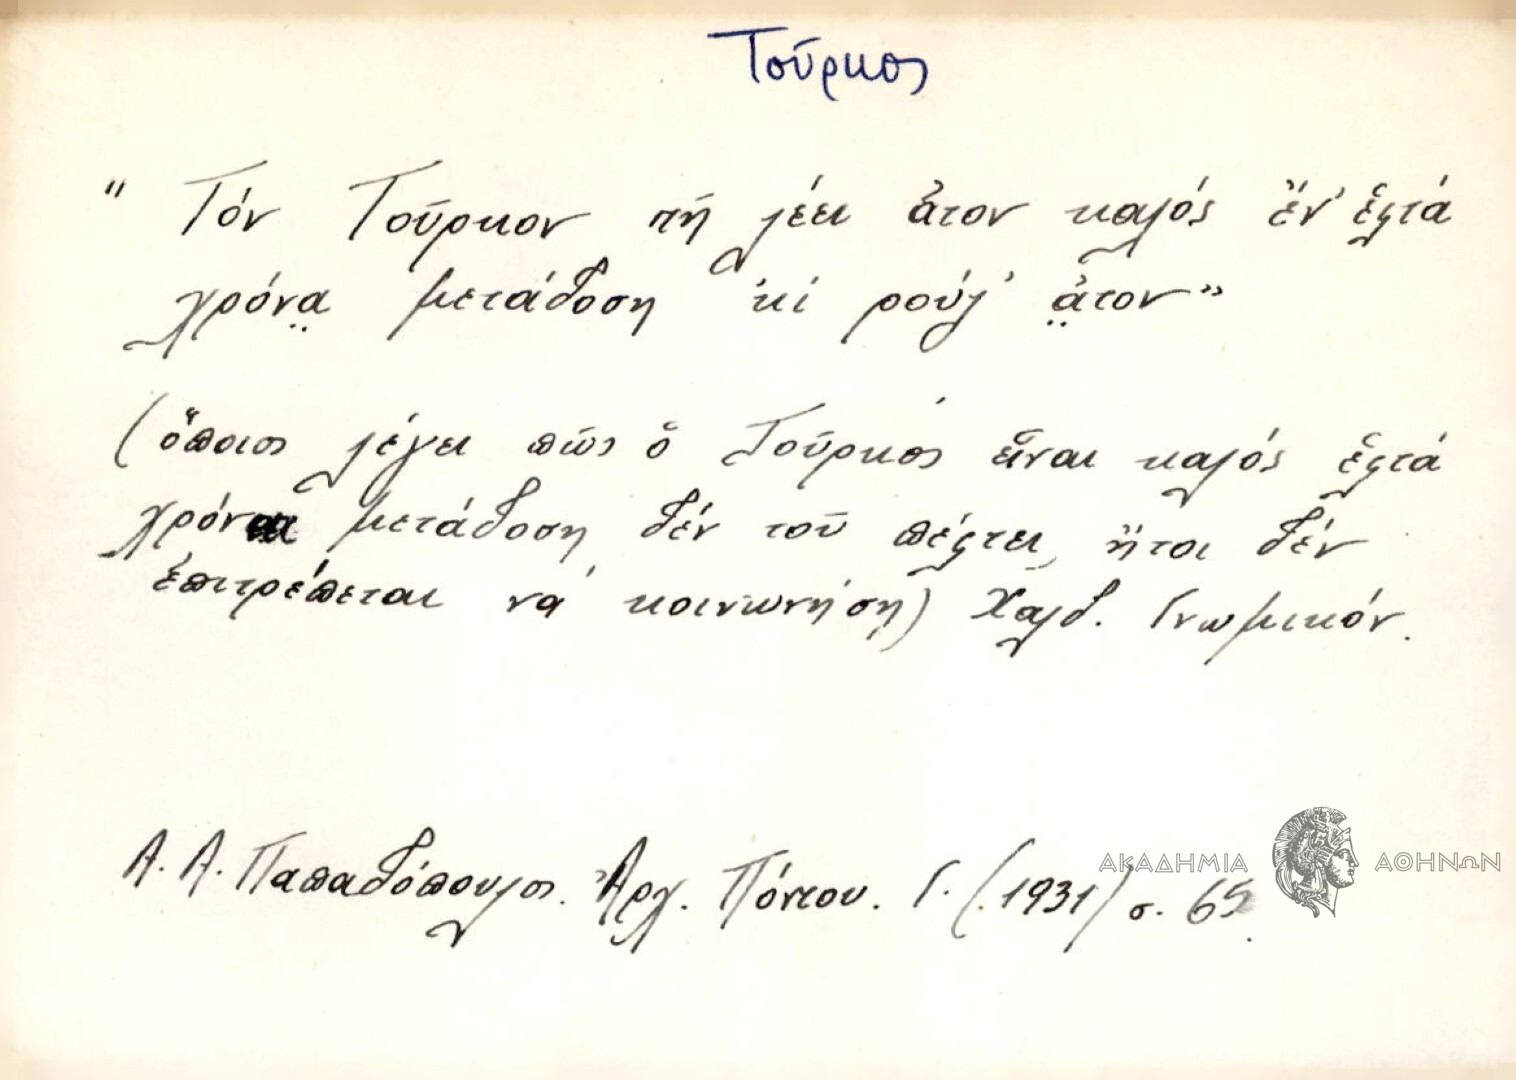 Τοῦρκος
"Τόν Τοῦρκον πῆ λέει ἄτον καλός ἔν' ἑφτά
χρόνα̤ μετάδοση 'κί ρούζ' ἀ̤τον"
(ὅποιος λέγει πῶς ὁ Τοῦρκος εἶναι καλός ἑφτά
χρόνια μετάδοση δέν τοῦ πέφτει, ἤτοι δέν
ἐπιτρέπεται νά κοινωνήση) Χαλδ. Γνωμικόν.
Α. Α. Παπαδόπουλος. Ἀρχ. Πόντου. Γ. (1931) σ. 65.
ΑΚΑΔΗΜΙΑ ΑΘΗΝΩΝ